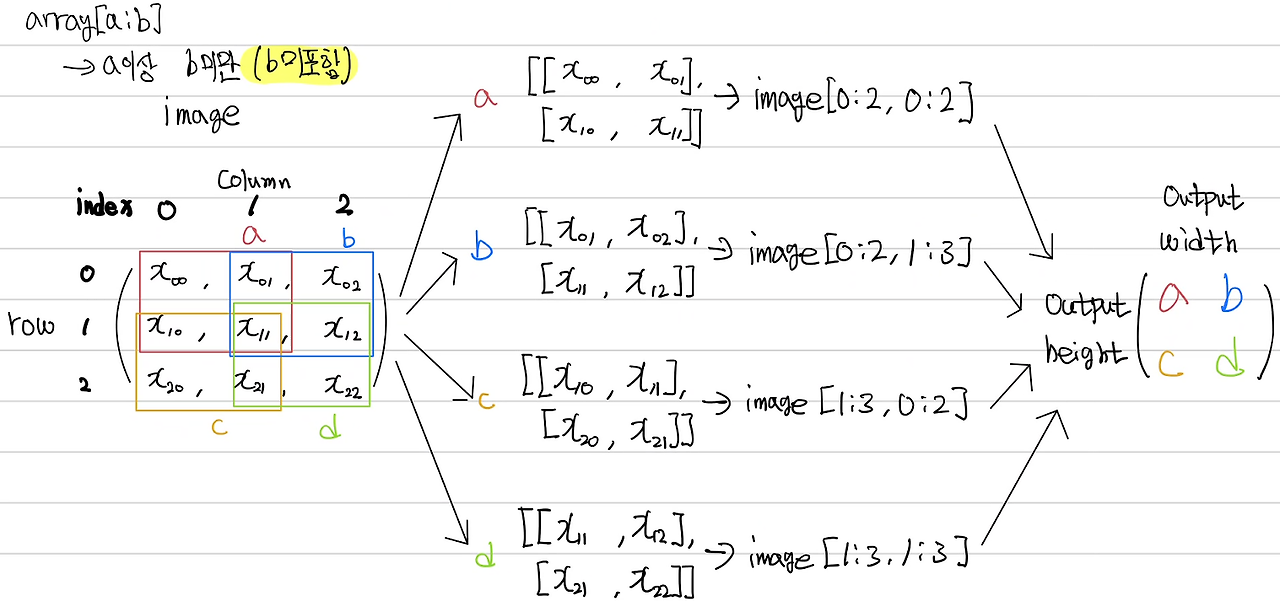 array[a:b]
→ a이상 b미만 (b미포함)
image
Column
index 0 1 2
a b
0 x₀₀ , x₀₁ , x₀₂
row 1 x₁₀ , x₁₁ , x₁₂
2 x₂₀ , x₂₁ , x₂₂
c d
a [[x₀₀ , x₀₁],
[x₁₀ , x₁₁]] → image[0:2, 0:2]
b [[x₀₁ , x₀₂],
[x₁₁ , x₁₂]] → image[0:2, 1:3]
c [[x₁₀ , x₁₁],
[x₂₀ , x₂₁]] → image [1:3, 0:2]
d [[x₁₁ , x₁₂],
[x₂₁ , x₂₂]] → image [1:3, 1:3]
Output
width
Output
height
a b
c d